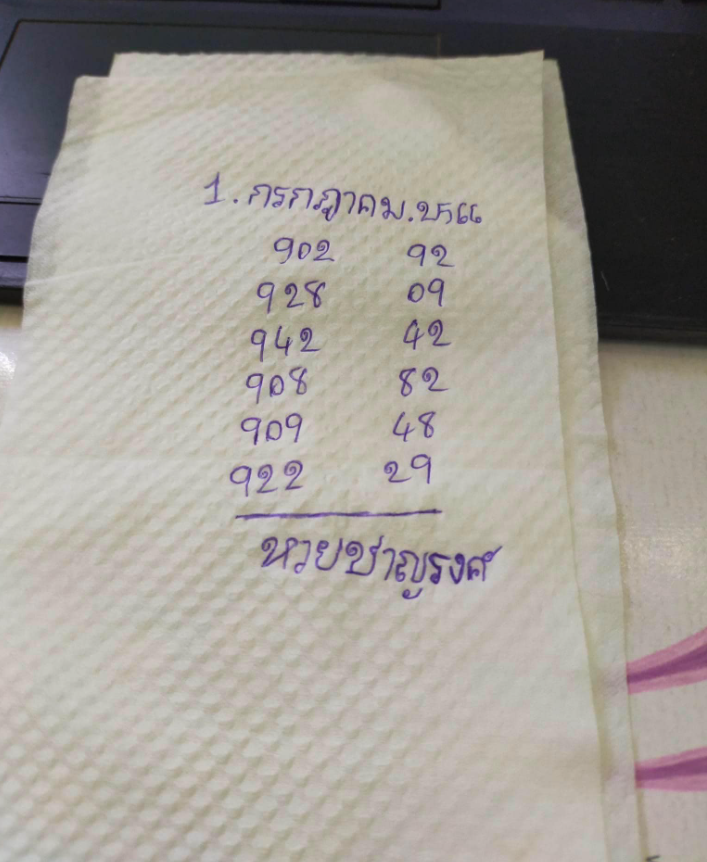 1. กรกฎาคม.๒๕๖๖
902 92
928 09
942 42
908 82
909 48
922 29
หวยชาญรงค์